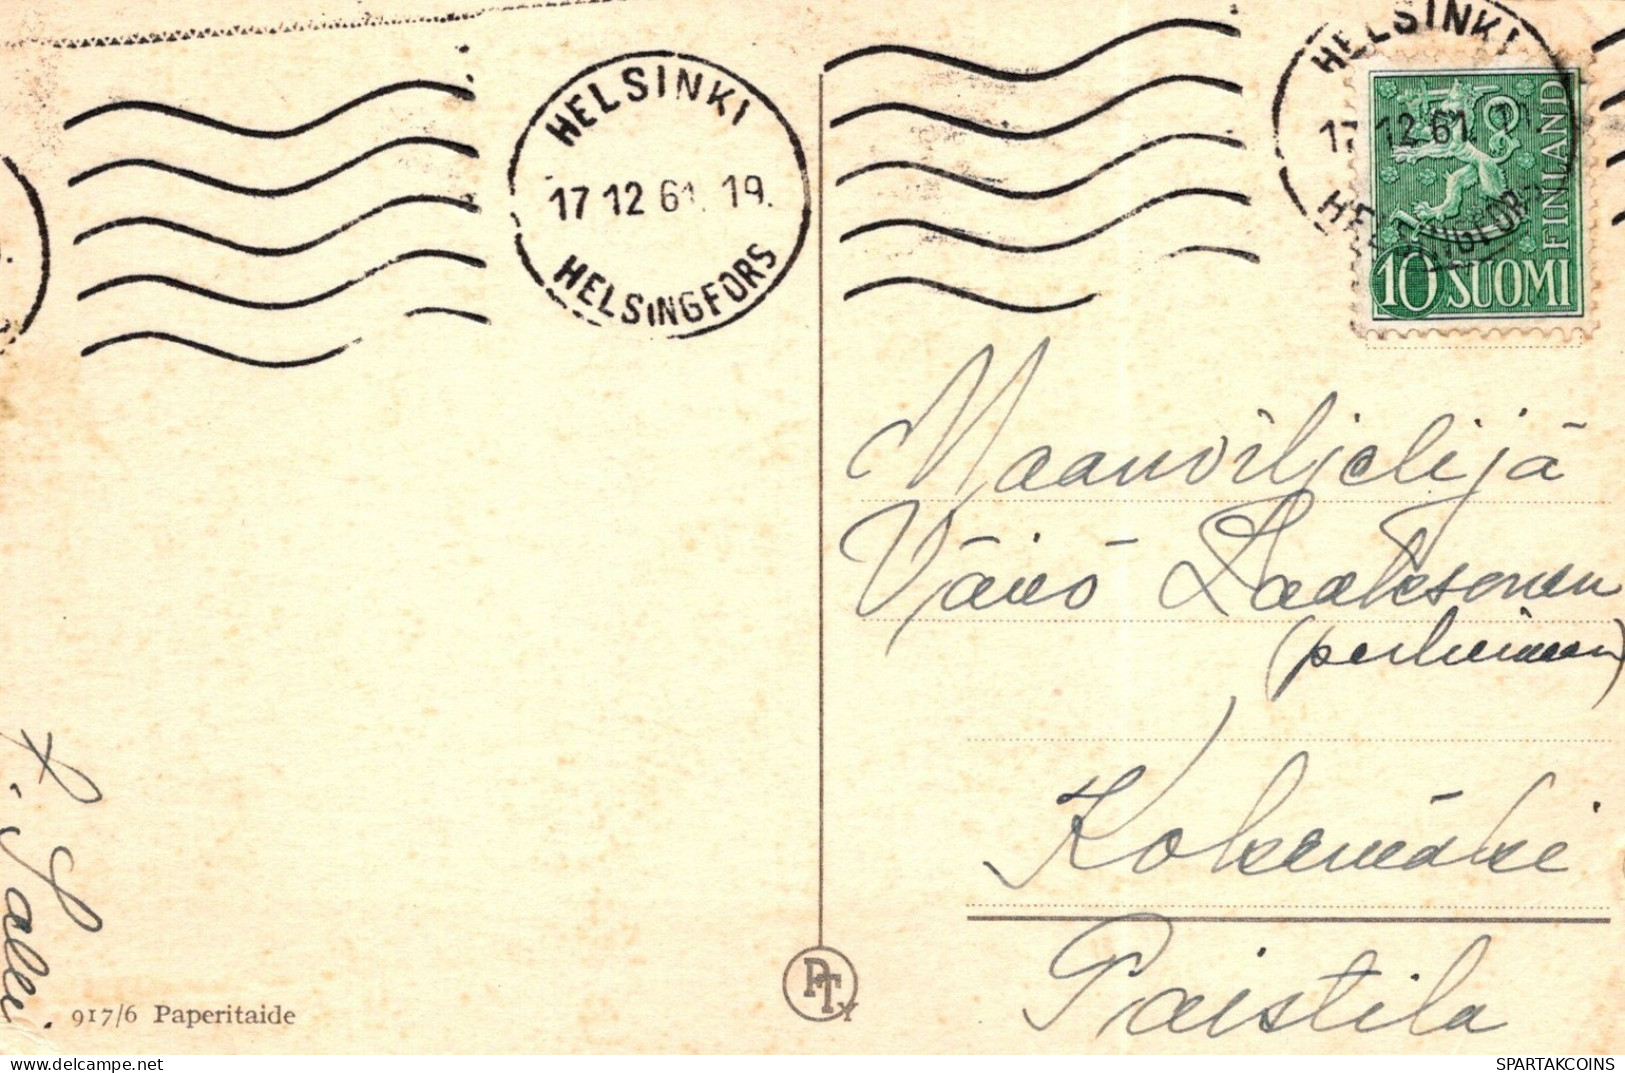 HELSINKI
17 12 61. 19.
HELSINGFORS
HELSINKI
17 12 61. 19.
HELSINGFORS
FINLAND
10 SUOMI
Maanviljelijä
Väinö Laaksonen
(perheineen)
Kokemäki
Paistila
917/6 Paperitaide
PTY
delcampe.net
SPARTAKCOINS